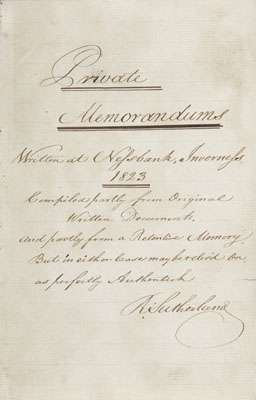 Private
Memorandums
Written at Nessbank, Inverness
1823
Compiled partly from Original
Written Documents,
And partly from a Retentive Memory,
But in either Case may be relied on
as perfectly Authentick
R. Sutherland